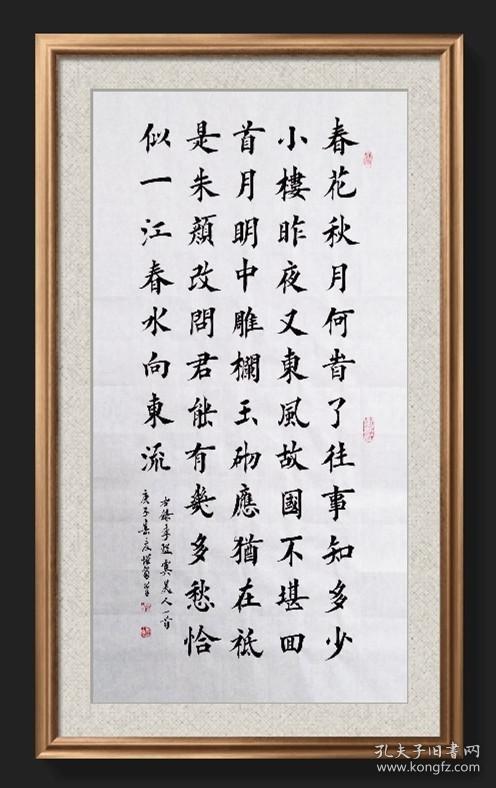 春花秋月何旹了往事知多少
小樓昨夜又東風故國不堪回
首月明中雕欄玉砌應猶在祗
是朱顏改問君能有幾多愁恰
似一江春水向東流
右錄李煜虞美人一首
庚子
孔夫子旧书网
www.kongfz.com